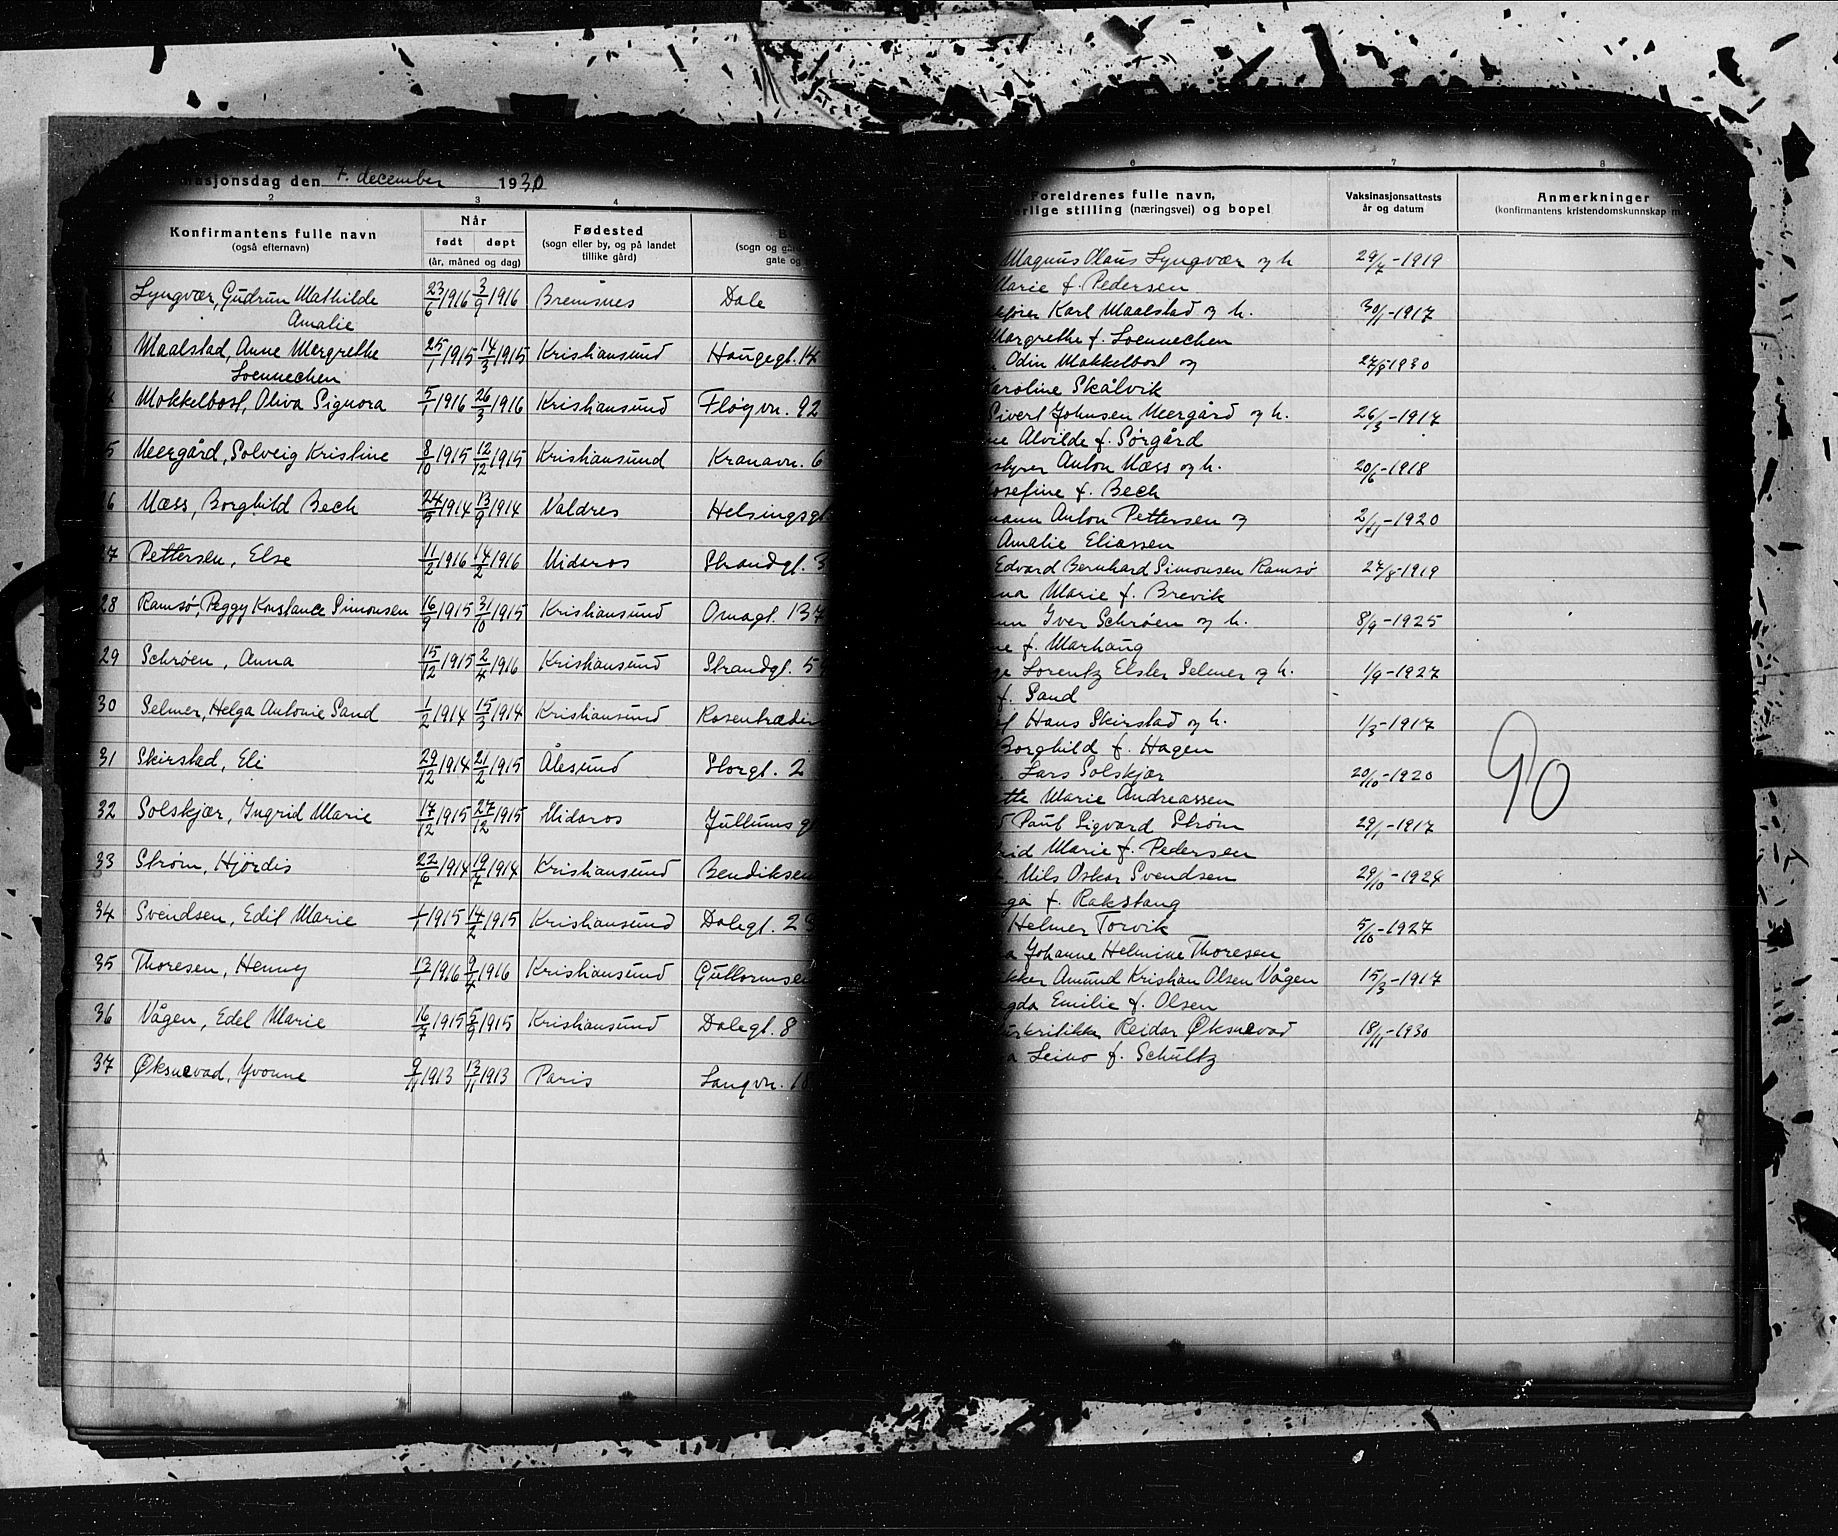 den 7. december 1930
2
3
4
Konfirmantens fulle navn
(også efternavn)
Når
født døpt
(år, måned og dag)
Fødested
(sogn eller by, og på landet
tillike gård)
(sogn og
gate og
Lyngvær, Gudrun Mathilde 23/6 1916 3/9 1916 Bremsnes Dale
Amalie
Maalstad, Anne Mergrethe 25/1 1915 14/3 1915 Kristiansund Haugegt. 14
Loennechen
Mokkelbost, Oliva Signora 5/1 1916 26/3 1916 Kristiansund Fløyvn. 92
5 Neergård, Solveig Kristine 8/10 1915 12/12 1915 Kristiansund Kranavn. 6
6 Næss, Borghild Bech 24/5 1914 13/9 1914 Valdres Helsingsgt.
27 Pettersen, Else 11/2 1916 14/2 1916 Nidaros Strandgt. 3
28 Ramsø, Peggy Konstance Simonsen 16/9 1915 31/10 1915 Kristiansund Omagt. 137
29 Schrøen, Anna 15/12 1915 2/4 1916 Kristiansund Strandgt. 5
30 Selmer, Helga Antonie Sand 1/2 1914 15/3 1914 Kristiansund
31 Skirstad, Eli 29/12 1914 21/2 1915 Ålesund Storgt. 2
32 Solskjær, Ingrid Marie 17/12 1915 27/12 1915 Nidaros Jullums
33 Strøm, Hjördis 22/6 1914 19/7 1914 Kristiansund Bendiksen
34 Svendsen, Edil Marie 1/1 1915 14/2 1915 Kristiansund Dalegt. 2
35 Thoresen, Henny 13/1 1916 9/4 1916 Kristiansund
36 Vågen, Edel Marie 16/7 1915 5/9 1915 Kristiansund Dalegt. 8
37 Øksnevad, Yvonne 9/11 1913 13/11 1913 Paris Langvn. 18
6
7
8
Foreldrenes fulle navn,
stilling (næringsvei) og bopel
Vaksinasjonsattests
år og datum
Anmerkninger
(konfirmantens kristendomskunnskap m.
Magnus Olaus Lyngvær og h. 29/7-1919
Marie f. Pedersen
Karl Maalstad og h. 30/1-1917
Margrethe f. Loennechen
Odin Mokkelbost og 27/5 1930
Karoline Skålvik
Sivert Johnsen Neergård og h. 26/3-1917
Alvilde f. Sørgård
Anton Næss og h. 20/6-1918
Josefine f. Bech
Anton Pettersen og 2/11-1920
Amalie Eliassen
Edvard Bernhard Simonsen Ramsø 27/8-1919
Marie f. Brevik
Iver Schrøen og h. 8/9-1925
f. Marhaug
Lorentz Elster Selmer og h. 1/9-1927
f. Sand
Hans Skirstad og h. 1/3-1917
Borghild f. Hagen
Lars Solskjær 20/10-1920
Marie Andreassen
Paul Sigvard Strøm 29/1-1917
Marie f. Pedersen
Nils Oskar Svendsen 29/10-1924
f. Rakstang
Helmer Torvik 5/10-1927
Johanne Helmine Thoresen
Amund Kristian Olsen Vågen 15/3-1917
Emilie f. Olsen
Reidar Øksnevad 18/11-1930
f. Schultz
90